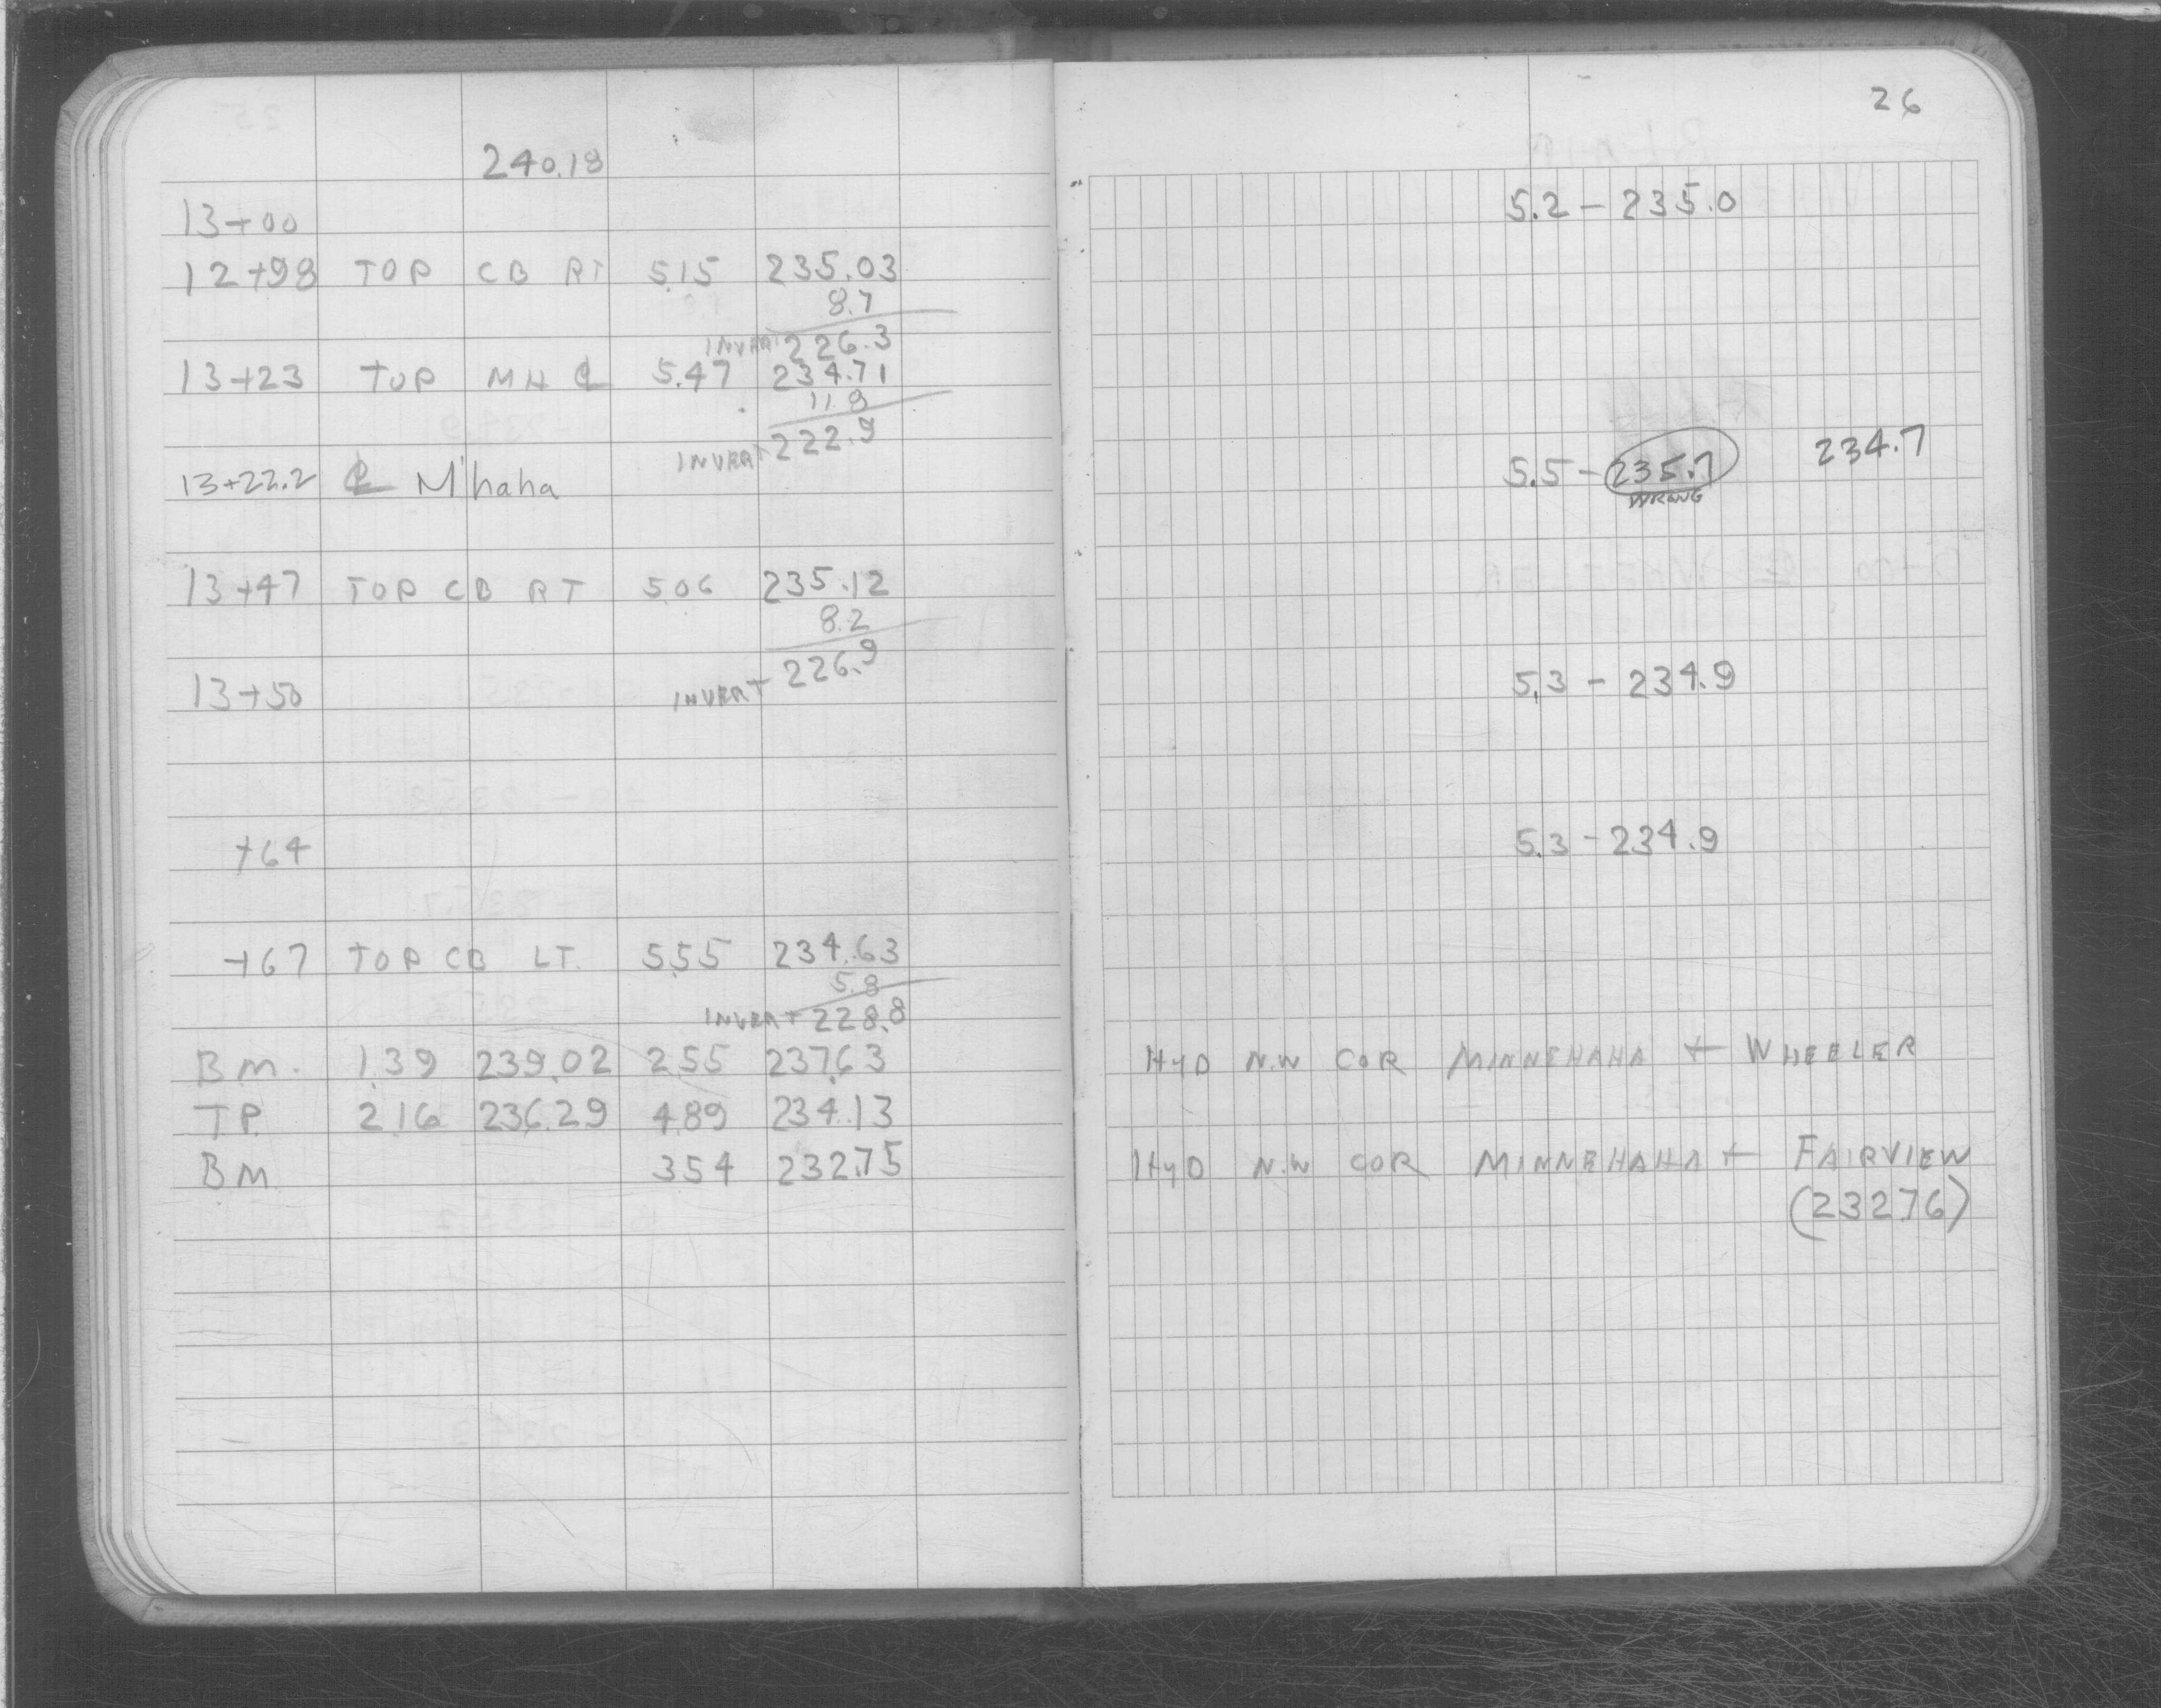 240.18
13+00
12+98 TOP CB RT 5.15 235.03
8.7
INVERT 226.3
13+23 TOP MH ℄ 5.47 234.71
11.8
INVERT 222.9
13+22.2 ℄ M'haha
13+47 TOP CB RT 5.06 235.12
8.2
INVERT 226.9
13+50
+64
+67 TOP CB LT. 5.55 234.63
5.8
INVERT 228.8
BM. 1.39 239.02 2.55 237.63
TP 2.16 236.29 4.89 234.13
BM 3.54 232.75
26
5.2 - 235.0
5.5 - 235.7 234.7
WRONG
5.3 - 234.9
5.3 - 234.9
HYD N.W COR MINNEHAHA + WHEELER
HYD N.W COR MINNEHAHA + FAIRVIEW
(232.76)